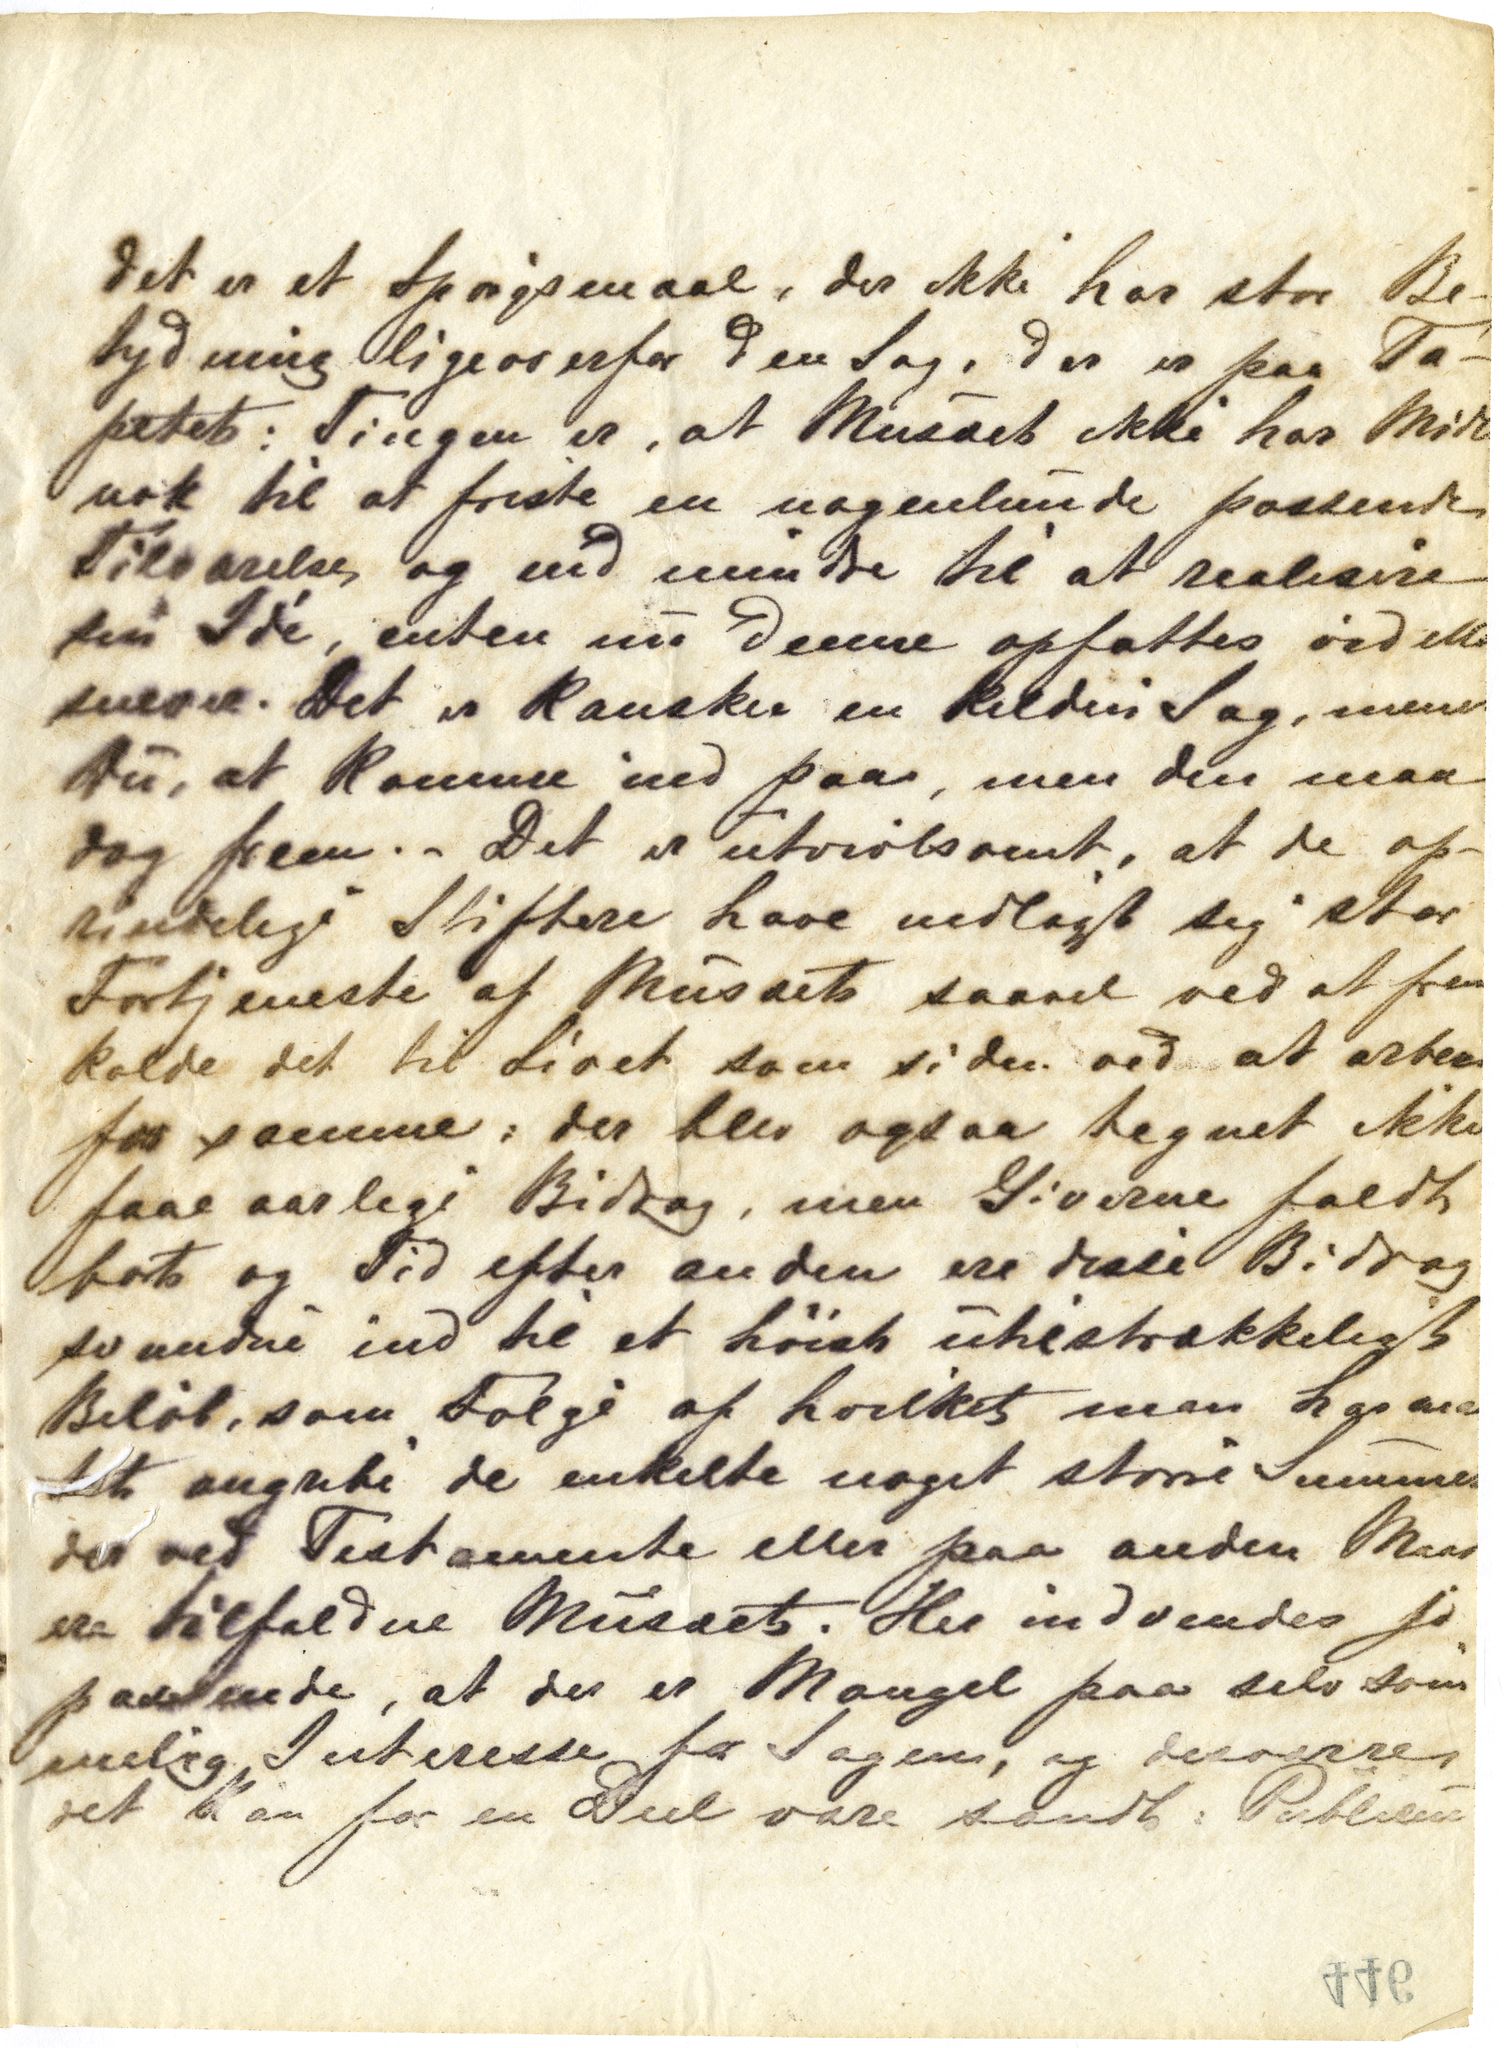 det er et Spørgsmaal, der ikke har stor Be-
tydning ligeoverfor den Sag, der er paa Ta-
petet: Tingen er, at Musæet ikke har Midl
nok til at friste en nogenlunde passende
Tilværelse, og end mindre til at realisere
sin Idé, enten nu denne opfattes vid ell
snever. Det er kanskee en kilden Sag, mener
Du, at komme ind paa, men den maa
dog frem. - Det er utvivlsomt, at de op-
rindelige Stiftere have nedlagt sig stor
Fortjeneste af Musæet saavel ved at frem
kalde det til Livet som siden ved at arbei
for samme; der blev ogsaa tegnet ikke
faae aarlige Bidrag, men Giverne faldt
bort og Tid efter anden ere disse Bidrag
svundne ind til et höist utilstrækkeligt
Beløb, som Følge af hvilket man har maa
tet angribe de enkelte noget større Summer
der ved Testamente eller paa anden Maad
ere tilfaldne Musæet. Her indvendes jo
paa ende, at der er Mangel paa selv söm
melig Interesse for Sagen, og desværre,
det kan for en Deel være sandt: Publicum
446